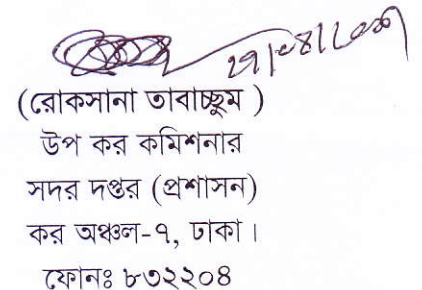 (রোকসানা তাবাচ্ছুম )
উপ কর কমিশনার
সদর দপ্তর (প্রশাসন)
কর অঞ্চল-৭, ঢাকা ।
ফোনঃ ৮৩২২০৪